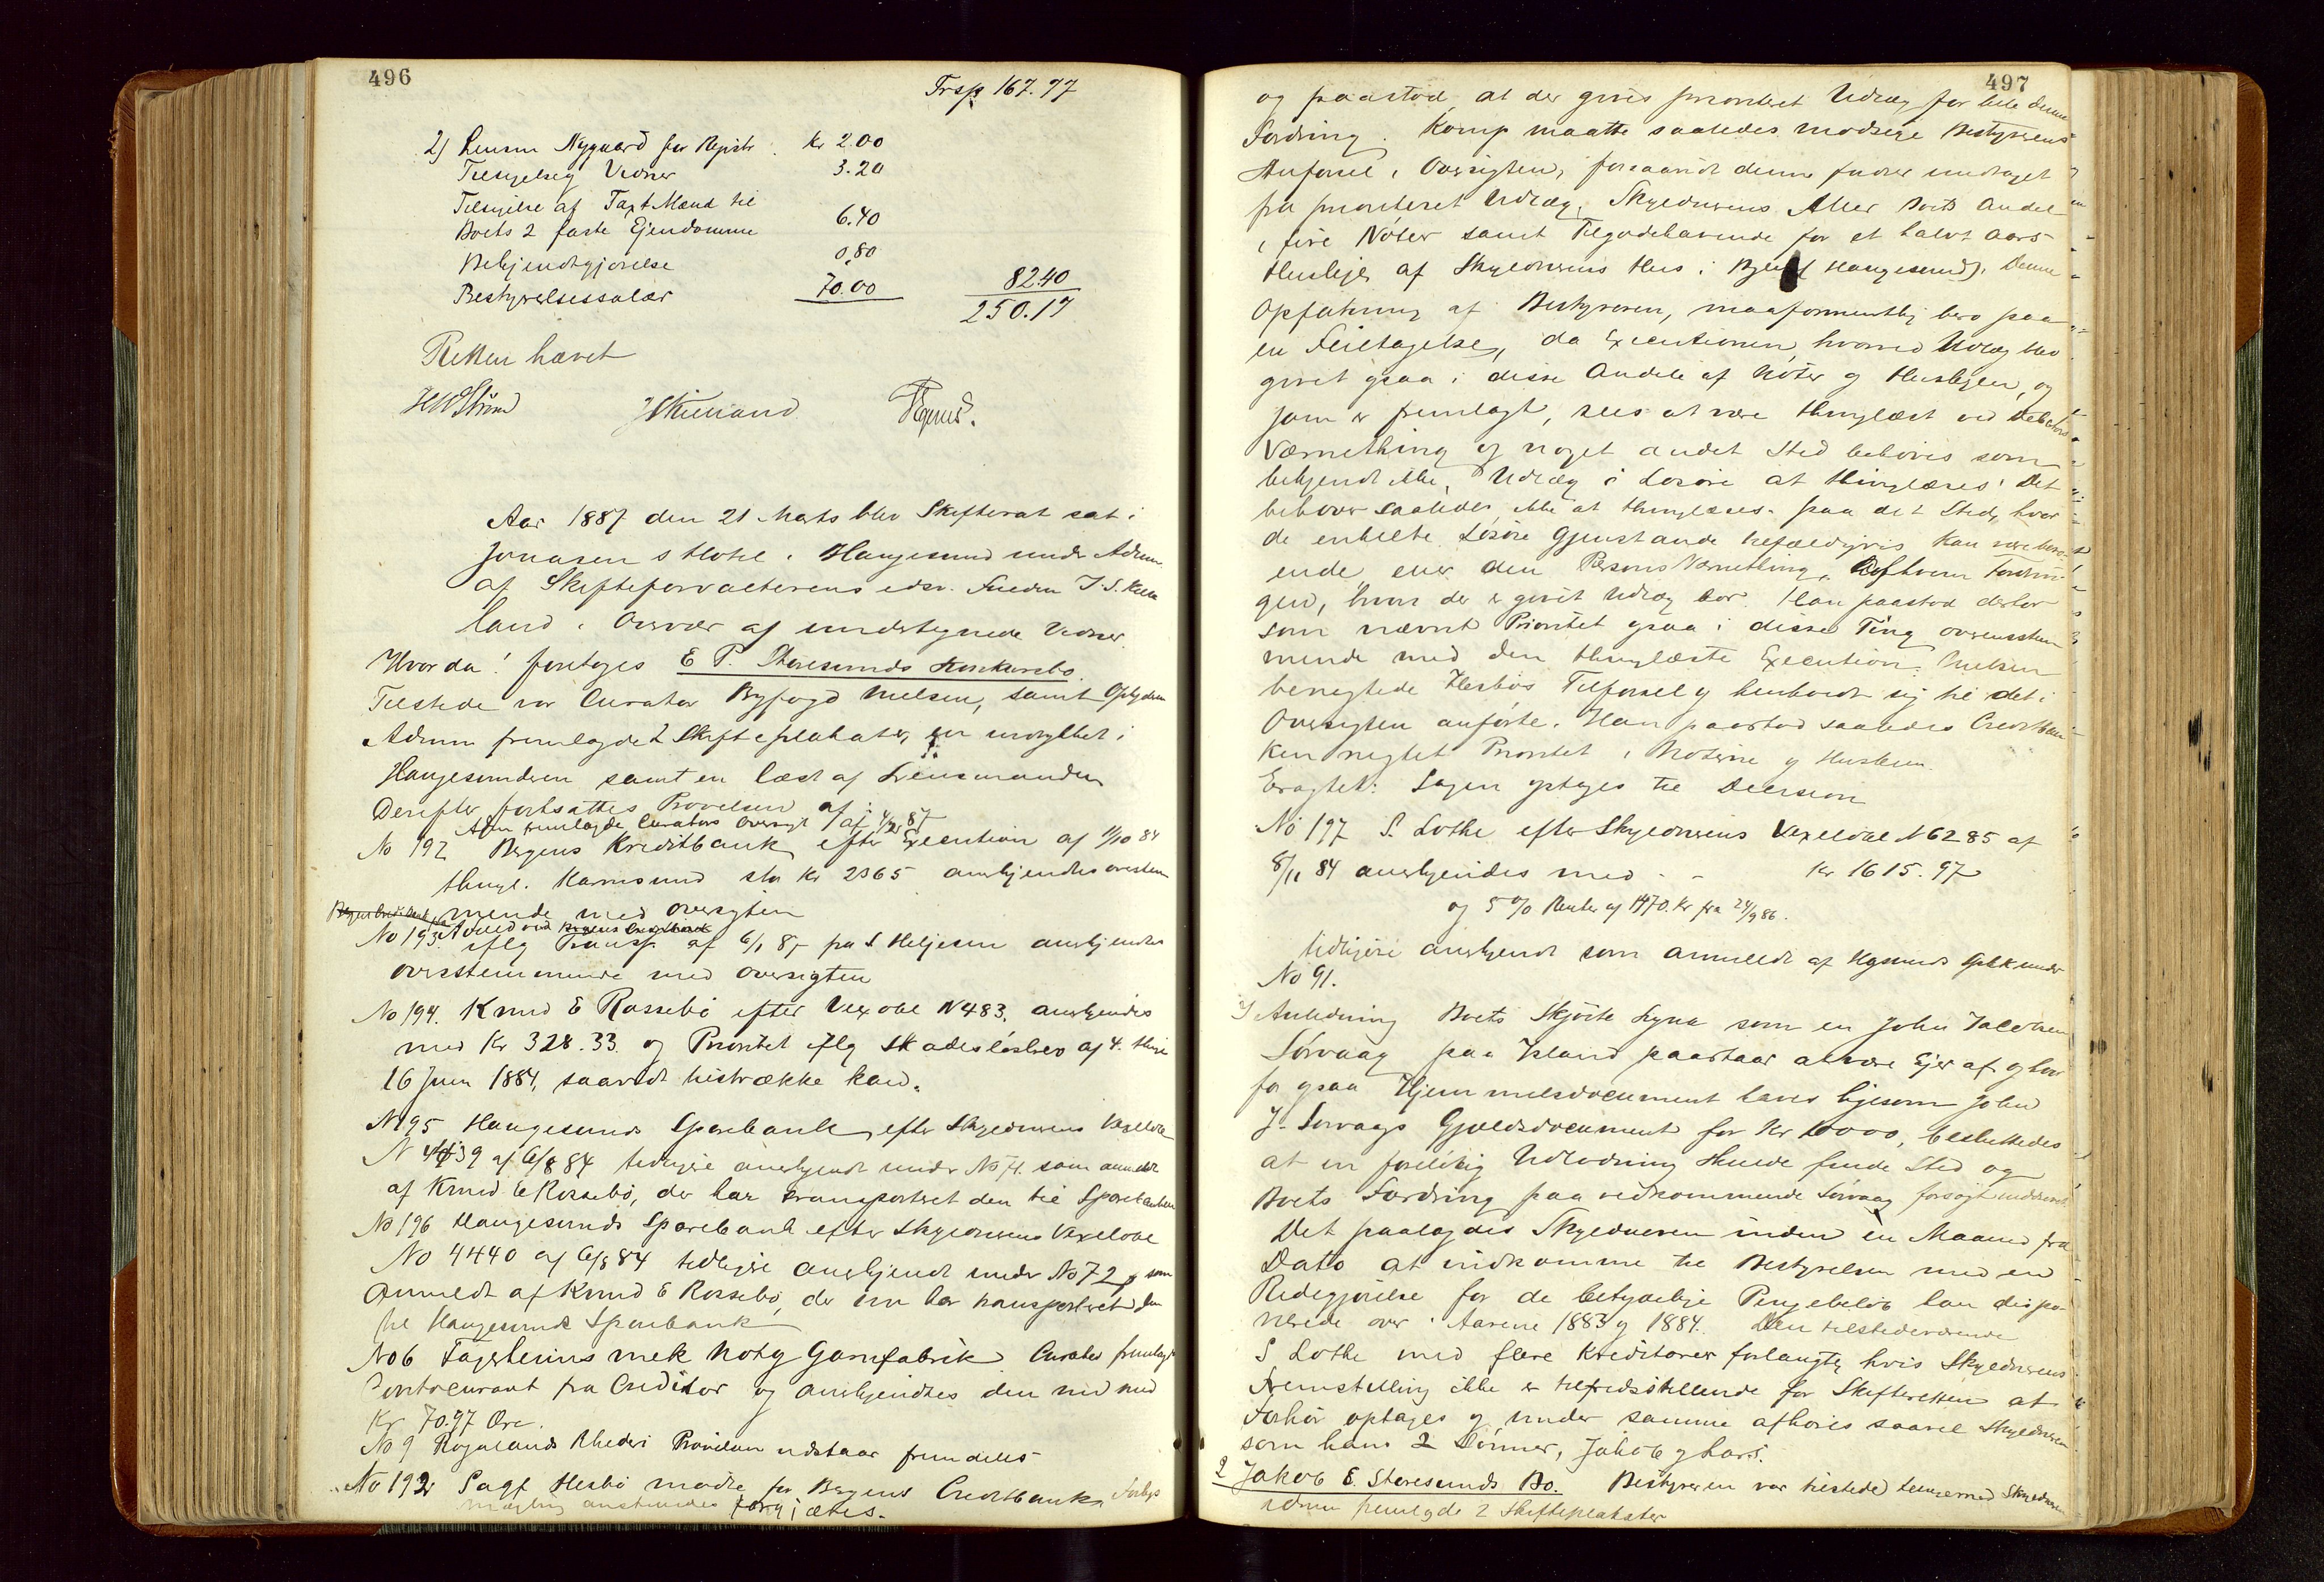 496
Trsp 167.77
2) Lensm Nygaard for Registr. Kr 2.00
Tilsigelse Vidner 3.20
Tilsigelse af Taxt Mænd til
Boets 2 faste Ejendomme 6.40
Bekjendtgjørelse 0,80
Bestyrelsessalær 70.00 82.40
250.17
Retten hævet
Aar 1887 den 21 Marts blev Skifteret sat i
Jonasen s Hotel i Haugesund under Adm.
af Skifteforvalterens edsv. Fuldm J. S. Kiel
land i Overvær af undertegnede Vidner.
Hvor da! foretoges E P. Storesunds Konkursbo.
Tilstede var Curator Byfoged Nielsen, samt
Adm fremlagde 2 Skifteplakater, en indrykket i
Haugesunderen samt en læst af Lensmanden
Derefter fortsattes Prøvelsen af:
Adm fremlagde Curators Oversigt af 4/2 87
No 192 Bergens Kreditbank efter Execution af 11/10 84
thingl. Karmsund sto Kr 2365 anerkjendes overstem
mende med Oversigten
No 193.
iflg Transp. af 6/1 85 fra S Heljesen anerkjendes
overstemmende med Oversigten
No 194. Knud E Rossebø efter Vexobl N 483. anerkjendes
med Kr 328.33. og Prioritet iflg Skadesløsbrev af 4. thgl
16 Juni 1884, saavidt tilstrække kan.
N 195 Haugesunds Sparebank efter Skyldnerens Vexelobl
N 4439 af 6/8 84 tidligere anerkjendt under No 71. som anmeldt
af Knud E Rossebø, der har transporteret den til Sparebanken
No 196 Haugesunds Sparebank efter Skyldnerens Vexelobl
No 4440 af 6/8 84 tidligere anerkjendt under No 72 som
Anmeldt af Knud E Rossebø, der nu har transporteret den
til Haugesunds Sparebank
No 6 Fagerheims mek Notg Garnfabrik Curator fremlagde
Contocurant fra Creditor og anerkjendtes den nu med
Kr 70.97 Øre.
No 9 Rogalands Rhederi Prøvelsen udstaar fremdeles
No 192 Sagf Hesbø mødte for Bergens Creditbank, Forligs
mægling anstilledes forgjæves.
497
og paastod, at der gives prioritet Udlæg for hele denne
Fordring. Komp maatte saaledes modsige Bestyrerens
Anførsel i Oversigten, forsaavidt denne finder undtaget
fra prioriteret Udlæg, Skyldnerens Aller Boets Andel
i fire Nøter samt Tilgodehavende for et halvt Aars
Husleje af Skyldnerens Hus i Byen Haugesund). Denne
Opfatning af Bestyreren, maa formentlig bero paa
en Feiltagelse, da Executionen, hvorved Udlæg blev
givet ogsaa i disse Andele af Nøter og Huslejen, og
som er fremlagt, sees at være thinglæst ved Debitors
Værnething og noget andet Sted behøves som
bekjendt ikke, Udlæg i Løsøre at thinglæses. Det
behøver saaledes ikke at thinglæses paa det Sted, hvor
de enkelte Løsøre Gjenstande tilfældigvis kan være bero-
ende eller den Persons Værnething, Af hvem Fordrin
gen, hvori der er givet Udlæg bor. Han paastod derfor
som nævnt Prioritet ogsaa i disse Ting overensstem
mende med den thinglæste Execution. Nielsen
benegtede Hesbøs Tilførsel og henholdt sig til det i
Oversigten anførte. Han paastod saaledes Creditban
ken negtet Prioritet i Nøterne og Huslejen.
Eragtet: Sagen optages til Decision
No 197 S. Lothe efter Skyldnerens Vexelobl N 6285 af
8/11 84 anerkjendes med - - Kr 1615.97
og 5% Renter af 1470. Kr fra 24/9 86.
tidligere anerkjendt som anmeldt af Hgsunds Spbk under
No 91.
I Anledning Boets Skjøite Lyna som en John Jacobsen
Sørvaag paa Island paastaar at være Ejer af og hvor
for ogsaa Hjemmelsdocument haves ligesom John
J. Sørvaags Gjældsdocument for Kr 10000, besluttedes
at en foreløbig Udlodning skulde finde Sted og
Boets Fordring paa vedkommende Sørvaag forsøgt inddrevet.
Det paalagdes Skyldneren inden en Maaned fra
Dato at indkomme til Bestyrelsen med en
Redegjørelse for de betydelige Pengebeløb han dispo-
nerede over i Aarene 1883 og 1884. Den tilstedeværende
S Lothe med flere Kreditorer forlangte, hvis Skyldnerens
Fremstilling ikke er tilfredsstillende for Skifteretten at
Forhør optages og under samme afhøres saavel Skyldneren
som hans 2 Sønner, Jakob og Lars.
2 Jakob E. Storesunds Bo. Bestyreren var tilstede ligesaa Skyldneren
Adm fremlagde 2 Skifteplakater